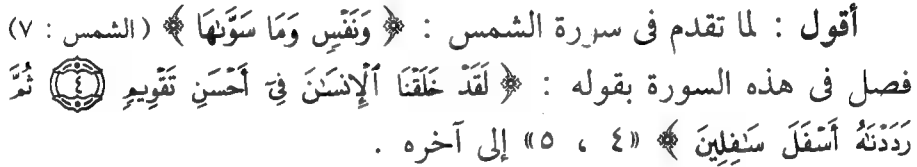 أقول : لما تقدم فى سورة الشمس : ﴿ وَنَفْسٍ وَمَا سَوَّىٰهَا ﴾ (الشمس : ٧)
فصل فى هذه السورة بقوله : ﴿ لَقَدْ خَلَقْنَا ٱلْإِنسَـٰنَ فِىٓ أَحْسَنِ تَقْوِيمٍ ۝٤ ثُمَّ
رَدَدْنَـٰهُ أَسْفَلَ سَـٰفِلِينَ ﴾ «٤ ، ٥» إلى آخره .